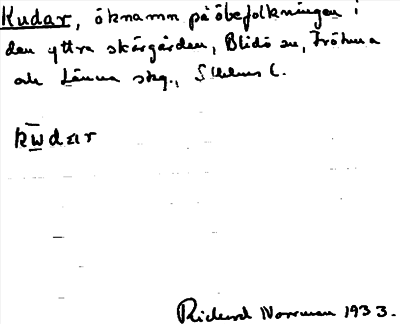 Kudar, öknamn på öbefolkningen i
den yttre skärgården, Blidö sn, Frötuna
och Länna skg., Sthlms l.
kw̄dar
Richard Norrman 1933.